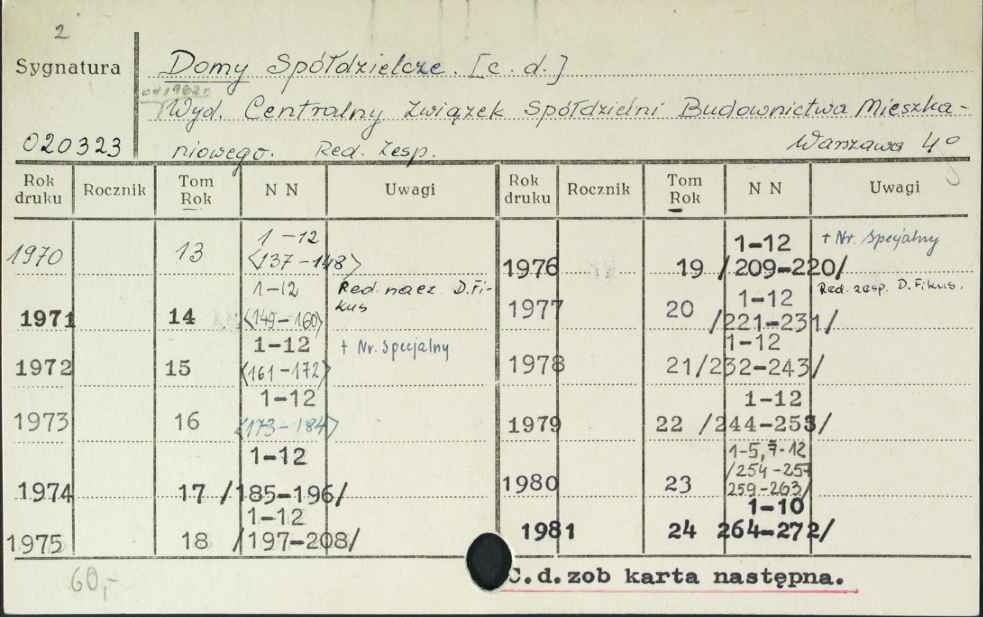 2
Sygnatura
Domy Spółdzielcze. [c.d.]
od 1962r
Wyd. Centralny Związek Spółdzielni Budownictwa Mieszka-
020323
niowego. Red. Zesp. Warszawa 4º
Rok druku Rocznik Tom Rok NN Uwagi Rok druku Rocznik Tom Rok NN Uwagi
1970 13 1-12 <137-148>
1971 14 1-12 <149-160> Red. nacz. D. Fi-
kus
1972 15 1-12 <161-172> + Nr. specjalny
1973 16 1-12 <173-184>
1974 17 1-12 /185-196/
1975 18 1-12 /197-208/
1976 19 1-12 /209-220/ + Nr. specjalny
1977 20 1-12 /221-231/ Red. zesp. D. Fikus.
1978 21 1-12 /232-243/
1979 22 1-12 /244-253/
1980 23 1-5, 7-12
/254-257
259-263/
1981 24 1-10 264-272/
60,-
C.d. zob karta następna.